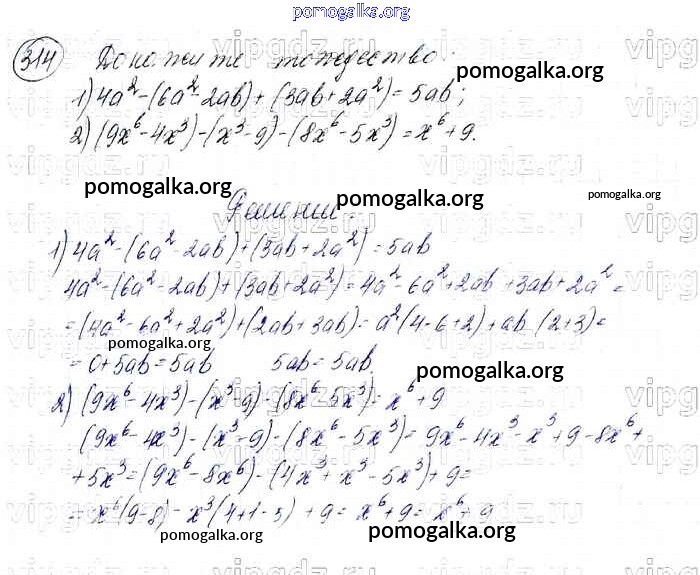 pomogalka.org
314 Докажите тождество:
1) 4a² - (6a² - 2ab) + (3ab + 2a²) = 5ab;
pomogalka.org
2) (9x⁶ - 4x³) - (x³ - 9) - (8x⁶ - 5x³) = x⁶ + 9.
pomogalka.org pomogalka.org pomogalka.org
Решение.
1) 4a² - (6a² - 2ab) + (3ab + 2a²) = 5ab
4a² - (6a² - 2ab) + (3ab + 2a²) = 4a² - 6a² + 2ab + 3ab + 2a² =
= (4a² - 6a² + 2a²) + (2ab + 3ab) = a²(4 - 6 + 2) + ab (2+3) =
pomogalka.org
= 0 + 5ab = 5ab 5ab = 5ab.
pomogalka.org
2) (9x⁶ - 4x³) - (x³ - 9) - (8x⁶ - 5x³) = x⁶ + 9
(9x⁶ - 4x³) - (x³ - 9) - (8x⁶ - 5x³) = 9x⁶ - 4x³ - x³ + 9 - 8x⁶ +
+ 5x³ = (9x⁶ - 8x⁶) - (4x³ + x³ - 5x³) + 9 =
= x⁶(9-8) - x³(4+1-5) + 9 = x⁶ + 9 = x⁶ + 9
pomogalka.org pomogalka.org